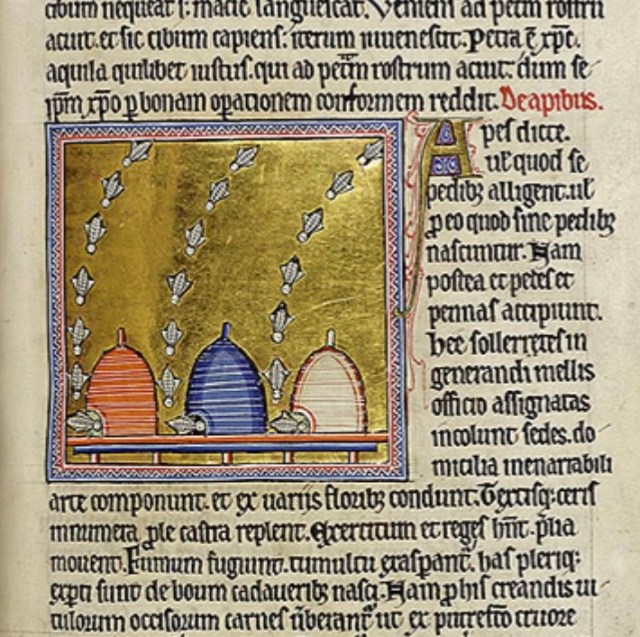 cibum nequeat ⁊ macie languescat. Veniens ad petm rostru
acuit. et sic cibum capiens: iterum iuuenescit. Petra ē xp̄c.
aquila quilibet iustus. qui ad petrā rostrum acuit: dum se
ip̄m xp̄o p bonam op̄ationem conformem reddit. De apibus.
Apes dicte.
uel quod se
pedib; alligent. ul̄
p eo quod sine pedib;
nascuntur. Nam
postea et pedes et
pennas accipiunt.
hee sollertes in
generandi mellis
officio assignatas
incolunt sedes. do
micilia inenarrabili
arte componunt. et ex uariis florib; condunt. Textisq; ceris
innumera ple castra replent. Exercitum et reges hn̄t. p̄lia
mouent. Fumum fugiunt. tumultu exasp̄ant̄. has pleriq;
exp̄ti sunt de boum cadauerib; nasci. Nam p his creandis ui
tulorum occisorum carnes ūberant̄ ut ex putrefc̄o cruore